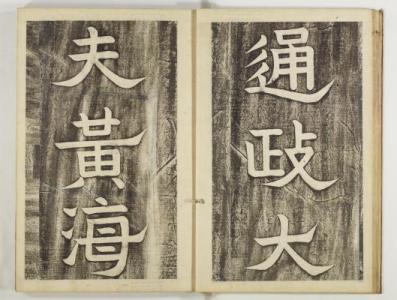 通政大
夫黃海